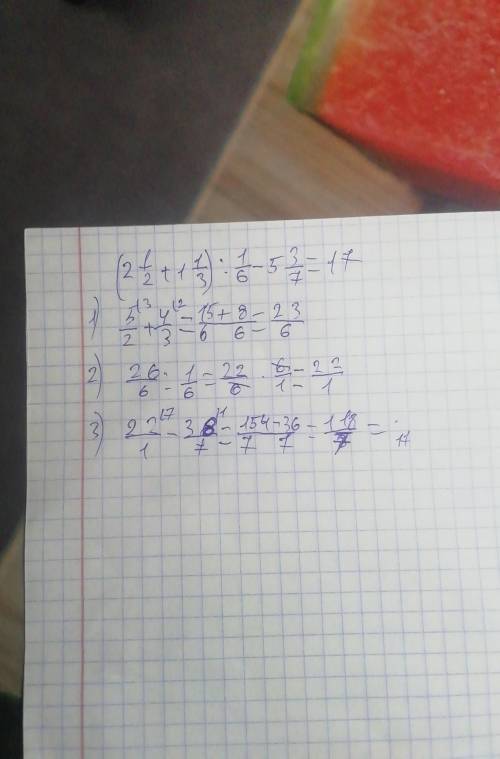 (2 1/2 + 1 1/3) : 1/6 - 5 3/7 = 17
1) 5/2 + 4/3 = 15 + 8/6 6 = 23/6
2) 26/6 : 1/6 = 22/6 · 6/1 = 22/1
3) 22/1 - 38/7 = 154 - 36/7 7 = 118/7 = 17